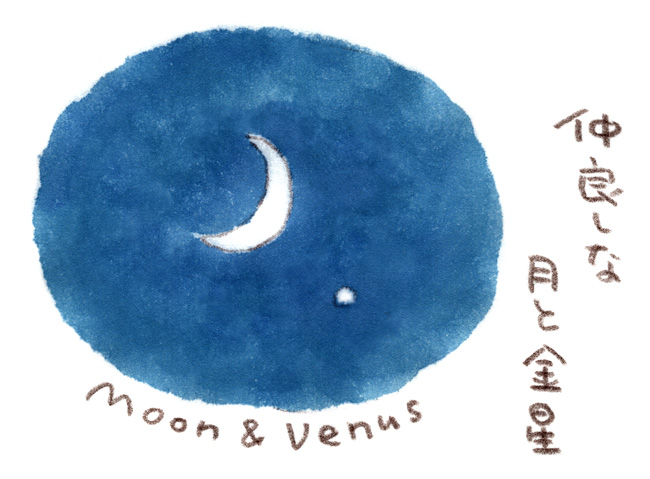 仲良しな
月と金星
Moon & Venus